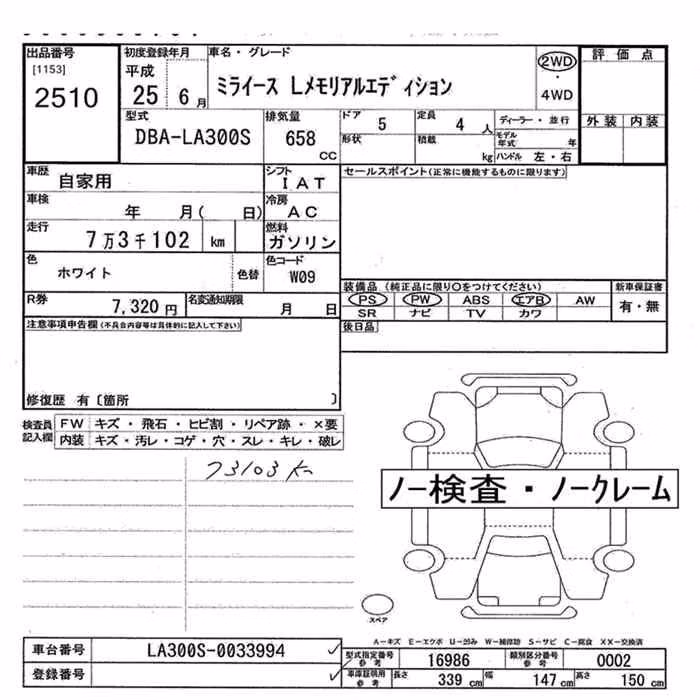 出品番号
[1153]
2510
初度登録年月
平成
25 6月
車名・グレード
ミライース Lメモリアルエディション
2WD
・
4WD
評価点
外装 内装
型式
DBA-LA300S
排気量
658
CC
ドア 5
定員 4 人
ディーラー・並行
形状
積載 kg
モデル年式 年
ハンドル 左・右
車歴
自家用
シフト
IAT
セールスポイント(正常に機能するものに限ります)
車検
年 月( 日)
冷房
AC
走行
7万3千102 km
燃料
ガソリン
色
ホワイト
色替
色コード
W09
装備品 (純正品に限り○をつけてください)
新車保証書
PS PW ABS エアB AW
有・無
SR ナビ TV カワ
R券
7,320 円
名変通知期限
月 日
後日品
注意事項申告欄(不具合内容等は具体的に記入して下さい)
修復歴 有〔箇所 〕
検査員記入欄
FW キズ・飛石・ヒビ割・リペア跡・×要
内装 キズ・汚レ・コゲ・穴・スレ・キレ・破レ
73103 K
ノー検査・ノークレーム
スペア
A-キズ E-エクボ U-凹み W-補修跡 S-サビ C-腐食 XX-交換済
車台番号
LA300S-0033994
型式指定番号参考
16986
類別区分番号参考
0002
登録番号
車庫証明用参考
長さ 339 cm
幅 147 cm
高さ 150 cm